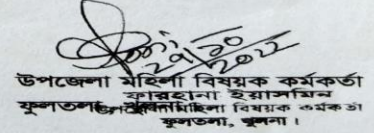 ২৭/১০/২০২২
উপজেলা মহিলা বিষয়ক কর্মকর্তা
ফারহানা ইয়াসমিন
ফুলতলা, উপজেলা মহিলা বিষয়ক কর্মকর্তা
ফুলতলা, খুলনা।